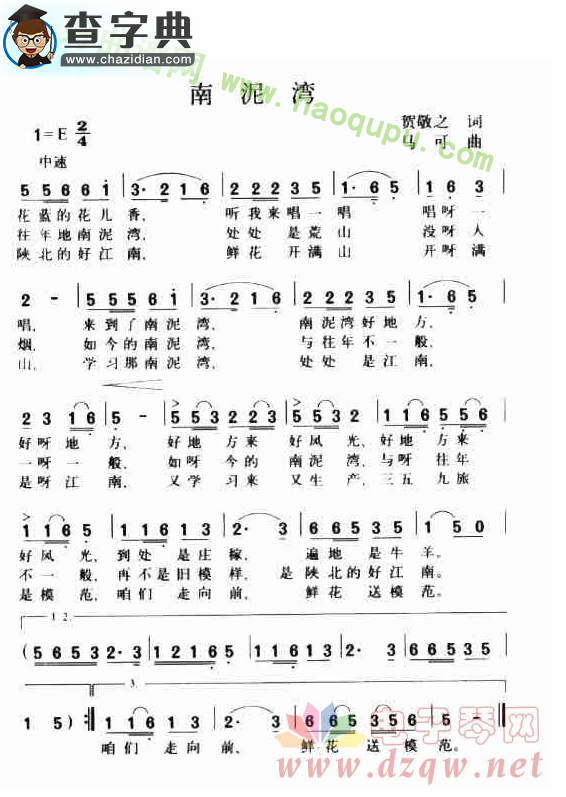 查字典
www.chazidian.com
www.haoqupu.com
南 泥 湾
1=E 2/4
贺敬之 词
马 可 曲
中速
5 5 6 6 i | 3· 2 1 6 | 2 2 2 3 5 | 1· 6 5 | 1 6 3
花 蓝 的 花 儿 香, 听 我 来 唱 一 唱 唱 呀 一
往 年 地 南 泥 湾, 处 处 是 荒 山 没 呀 人
陕 北 的 好 江 南, 鲜 花 开 满 山 开 呀 满
2 - | 5 5 5 6 i | 3· 2 1 6 | 2 2 2 3 5 | 1· 6 5
唱, 来 到 了 南 泥 湾, 南 泥 湾 好 地 方,
烟, 如 今 的 南 泥 湾, 与 往 年 不 一 般,
山, 学 习 那 南 泥 湾, 处 处 是 江 南,
2 3 1 6 | 5 - | 5 5 3 2 2 3 | 5 5 3 2 1 6 | 5 5 6
好 呀 地 方, 好 地 方 来 好 风 光, 好 地 方 来
一 呀 一 般, 如 呀 今 的 南 泥 湾, 与 呀 往 年
是 呀 江 南, 又 学 习 来 又 生 产, 三 五 九 旅
1 1 6 5 | 1 1 6 1 3 | 2· 3 | 6 6 5 3 5 | 1 5 0
好 风 光, 到 处 是 庄 稼, 遍 地 是 牛 羊。
不 一 般, 再 不 是 旧 模 样, 是 陕 北 的 好 江 南。
是 模 范, 咱 们 走 向 前, 鲜 花 送 模 范。
1. 2.
( 5 6 5 3 | 2· 3 | 1 2 1 6 5 | 6 6 5 1 3 | 2· 3 | 6 6 5 3 5
3.
1 5 ) :‖ 1 1 6 1 3 | 2· 3 | 6 6 5 3 5 6 | 5 - ‖
咱 们 走 向 前, 鲜 花 送 模 范。
电子琴网
www.dzqw.net